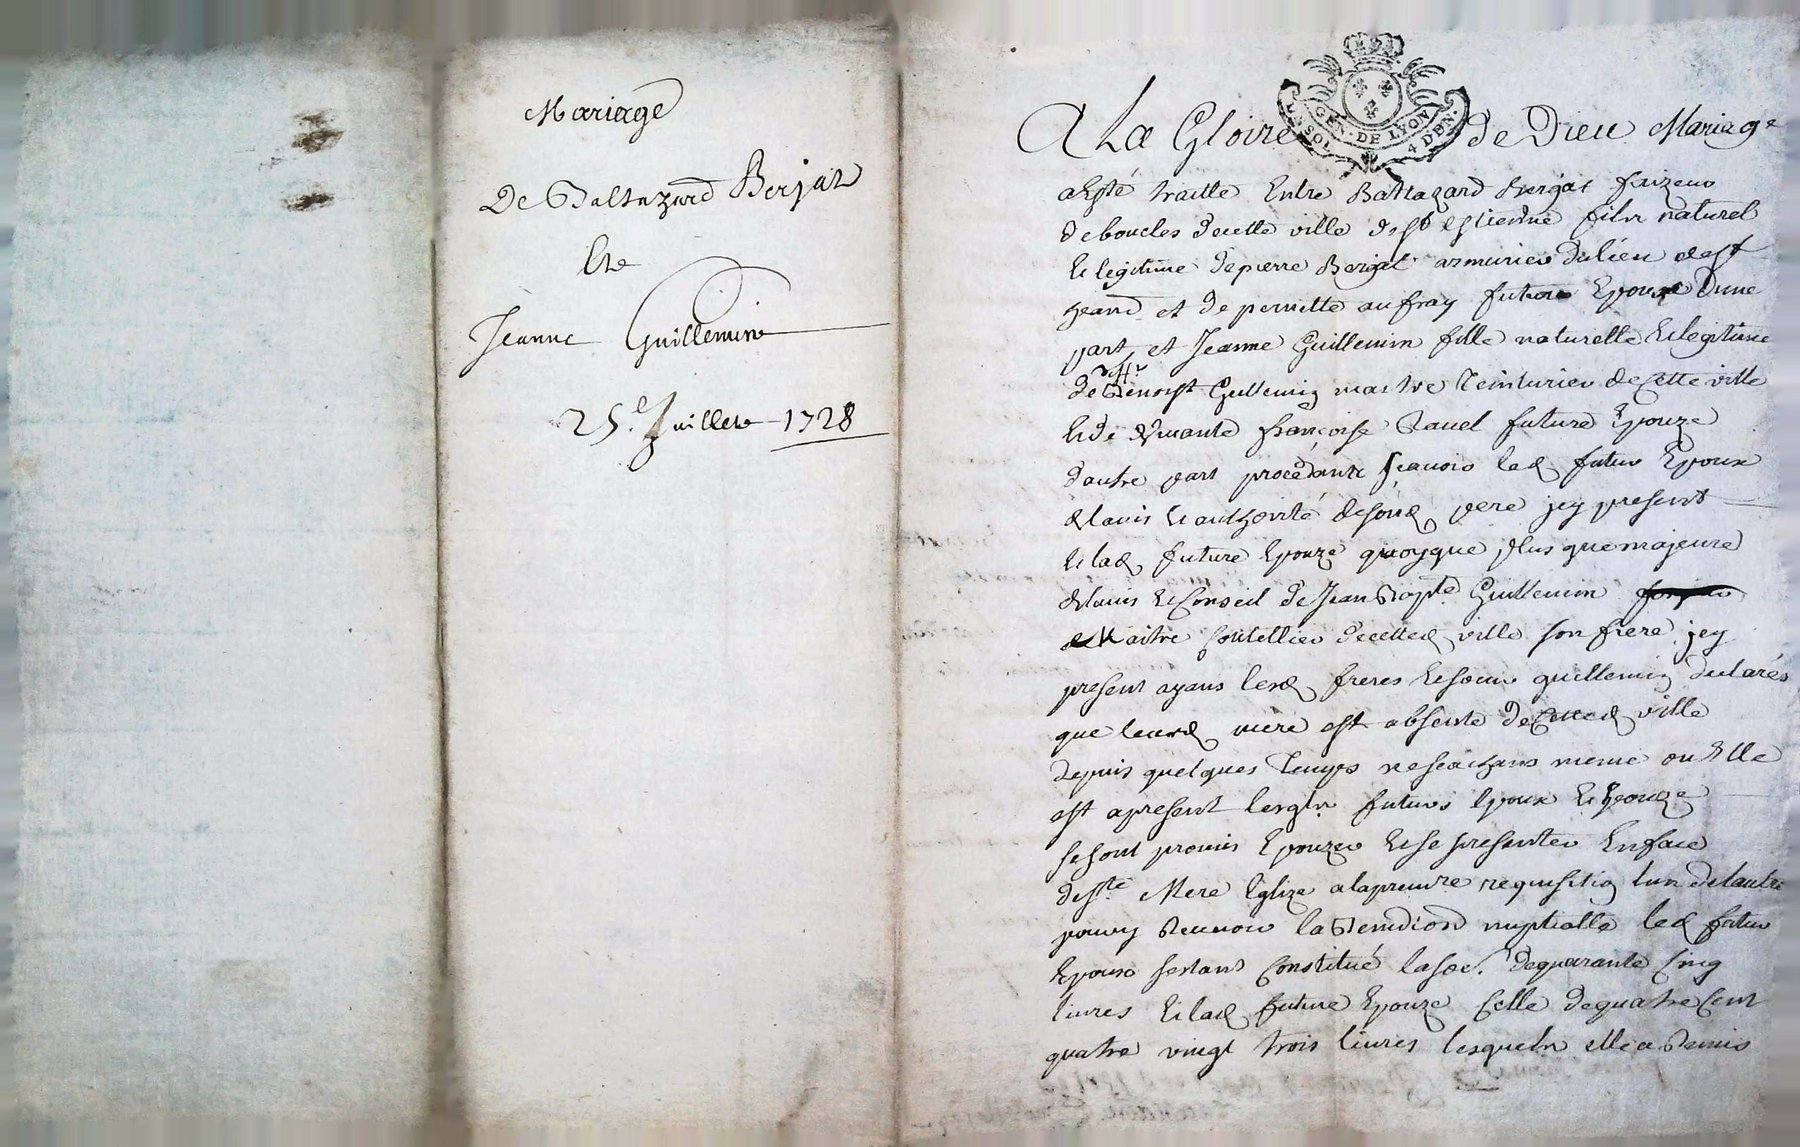 Mariage
De Baltazard Berjat
Et
Jeanne Guillemin
25.e Juillet 1728
GEN. DE LYON
SOL 4 DEN.
A La Gloire de Dieu Mariage
a esté traitté Entre Baltazard Bergat faizeur
de boucles decette ville de st estienne fils naturel
Et legitime de pierre Bergat armurier du lieu de st
jeand et de pernette aufray futur Epoux Dune
part, et Jeanne Guillemin fille naturelle Et legitime
de Benoist Guillemin maitre Teinturier de Cette ville
Et de vivante françoise Ravel future Epouze
dautre part procédants sçavoir led futur Epoux
de lavis Et authorité de sond pere icy present
Et lad future Epouze quoyque plus que majeure
de lavis Et Conseil de Jean Bapte Guillemin
Maitre Coutellier decetted ville son frere icy
present ayans lesd freres Et soeur guillemin declarés
que leurd mere est absente de Cetted ville
depuis quelques Temps ne seachans meme ou Elle
est apresent lesqls futurs Epoux Et Epouze
se sont promis Epouzer Et se presenter En face
de ste Mere Eglize a la premire requisition lun de lautre
pour y recevoir la Benediction nuptialle led futur
Epoux sestant Constitué la soe. de quarante Cinq
livres Et lad future Epouze Celle de quatre Cent
quatre vingt trois livres lesquels elle a Remis